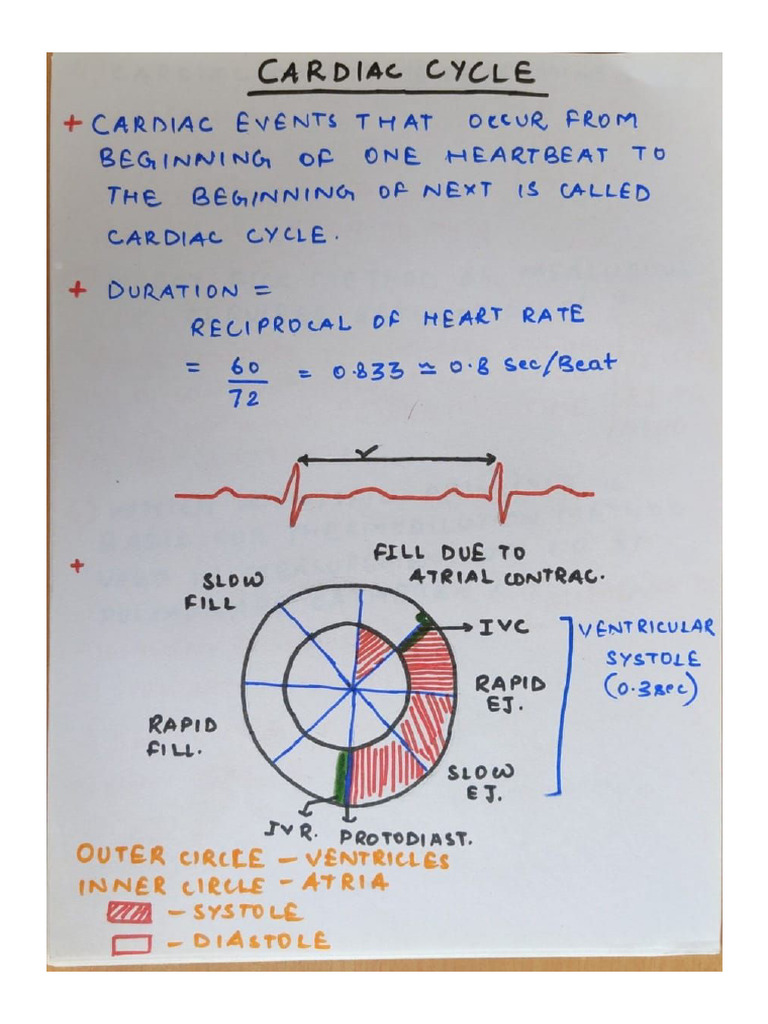 CARDIAC CYCLE
+ CARDIAC EVENTS THAT OCCUR FROM
BEGINNING OF ONE HEARTBEAT TO
THE BEGINNING OF NEXT IS CALLED
CARDIAC CYCLE.
+ DURATION =
RECIPROCAL OF HEART RATE
= 60/72 = 0.833 ≃ 0.8 sec/Beat
+
FILL DUE TO
ATRIAL CONTRAC.
SLOW
FILL
IVC
VENTRICULAR
SYSTOLE
(0.3sec)
RAPID
EJ.
RAPID
FILL.
SLOW
EJ.
IVR. PROTODIAST.
OUTER CIRCLE - VENTRICLES
INNER CIRCLE - ATRIA
- SYSTOLE
- DIASTOLE